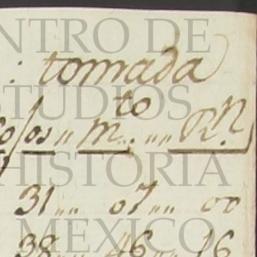 NTRO DE
: tomada
ESTUDIOS
to
os " m " " R.n
HISTORIA
31 " " 07 " " 00
MÉXICO
38 " " 46 " " 16